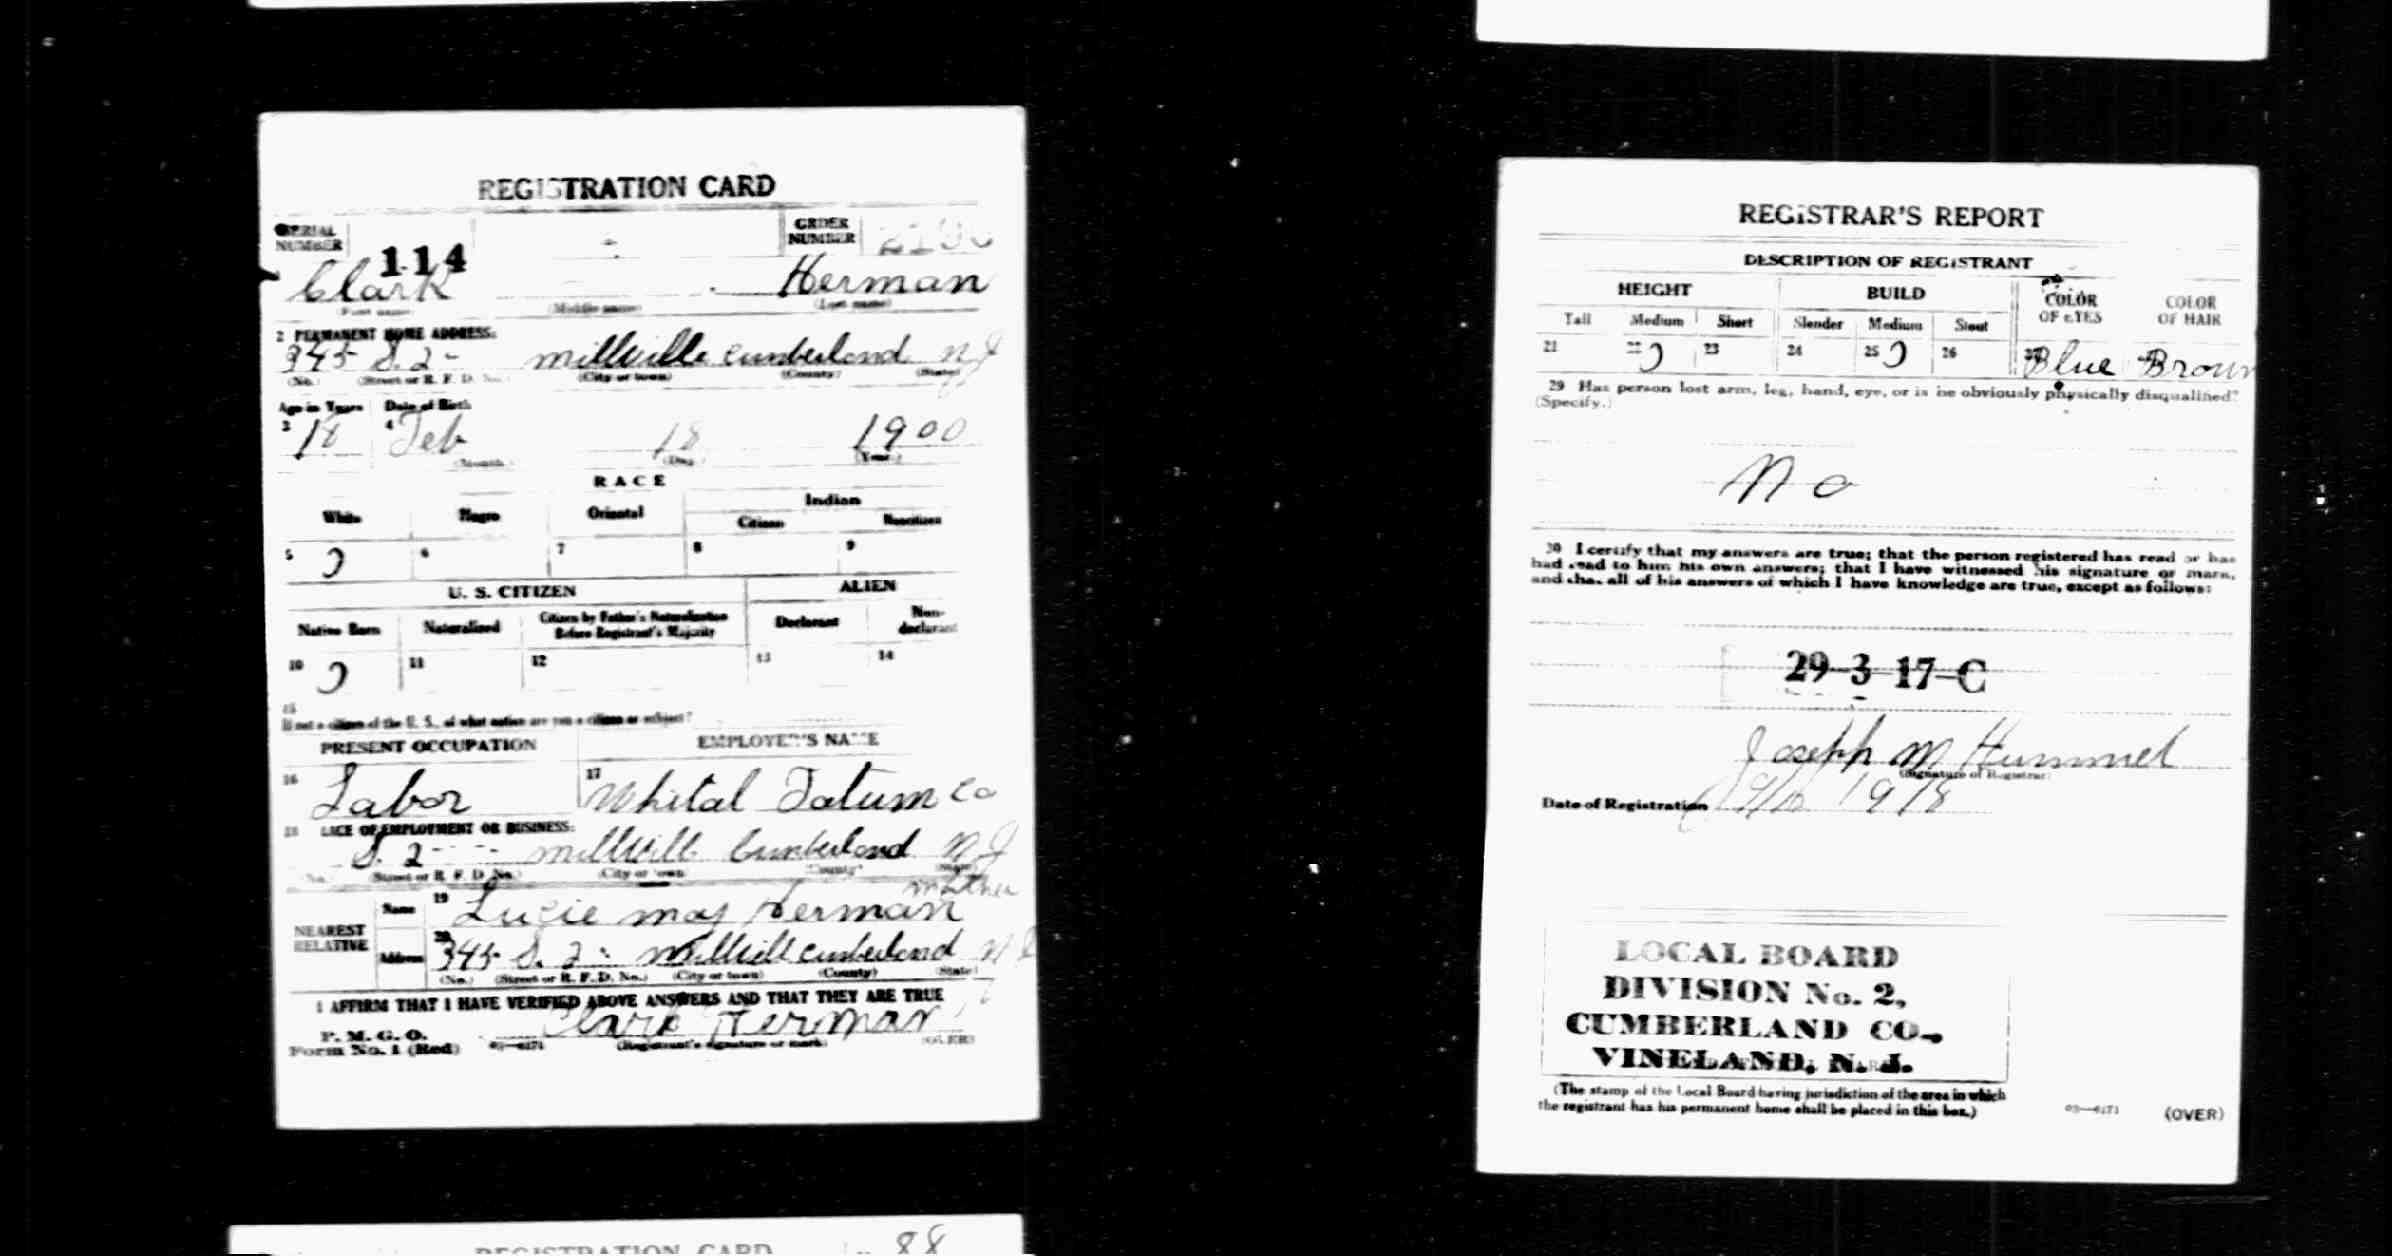 REGISTRATION CARD
SERIAL NUMBER 114 ORDER NUMBER
Clark Herman
(First name) (Middle name) (Last name)
2 PERMANENT HOME ADDRESS:
345 S. 2 - Millville Cumberland N J
(No.) (Street or R. F. D. No.) (City or town) (County) (State)
Age in Years Date of Birth
3 18 4 Feb 18 1900
(Month) (Day) (Year)
RACE
White Negro Oriental Indian
Citizen Noncitizen
5 6 7 8 9
U. S. CITIZEN ALIEN
Native Born Naturalized Citizen by Father's Naturalization Before Registrant's Majority Declarant Non-declarant
10 11 12 13 14
15
If not a citizen of the U. S., of what nation are you a citizen or subject?
PRESENT OCCUPATION EMPLOYER'S NAME
16 Labor 17 Whital Tatum Co
18 PLACE OF EMPLOYMENT OR BUSINESS:
S. 2 - Millvill Cumberland N J
(No.) (Street or R. F. D. No.) (City or town) (County) (State)
mother
NEAREST RELATIVE Name 19 Herman
Address 20 345 S. 2 - Millvill Cumberland N J
(No.) (Street or R. F. D. No.) (City or town) (County) (State)
I AFFIRM THAT I HAVE VERIFIED ABOVE ANSWERS AND THAT THEY ARE TRUE
P. M. G. O.
Form No. 1 (Red) 03—6171 Clark Herman
(Registrant's signature or mark) (OVER)
REGISTRATION CARD 88
REGISTRAR'S REPORT
DESCRIPTION OF REGISTRANT
HEIGHT BUILD COLOR OF EYES COLOR OF HAIR
Tall Medium Short Slender Medium Stout
21 22 23 24 25 26 27 Blue Brown
29 Has person lost arm, leg, hand, eye, or is he obviously physically disqualified?
(Specify.)
No
30 I certify that my answers are true; that the person registered has read or has
had read to him his own answers; that I have witnessed his signature or mark,
and that all of his answers of which I have knowledge are true, except as follows:
29-3-17-C
Joseph M Hummel
(Signature of Registrar)
Date of Registration 1918
LOCAL BOARD
DIVISION No. 2,
CUMBERLAND CO.,
VINELAND, N. J.
(The stamp of the Local Board having jurisdiction of the area in which
the registrant has his permanent home shall be placed in this box.)
03—6171 (OVER)